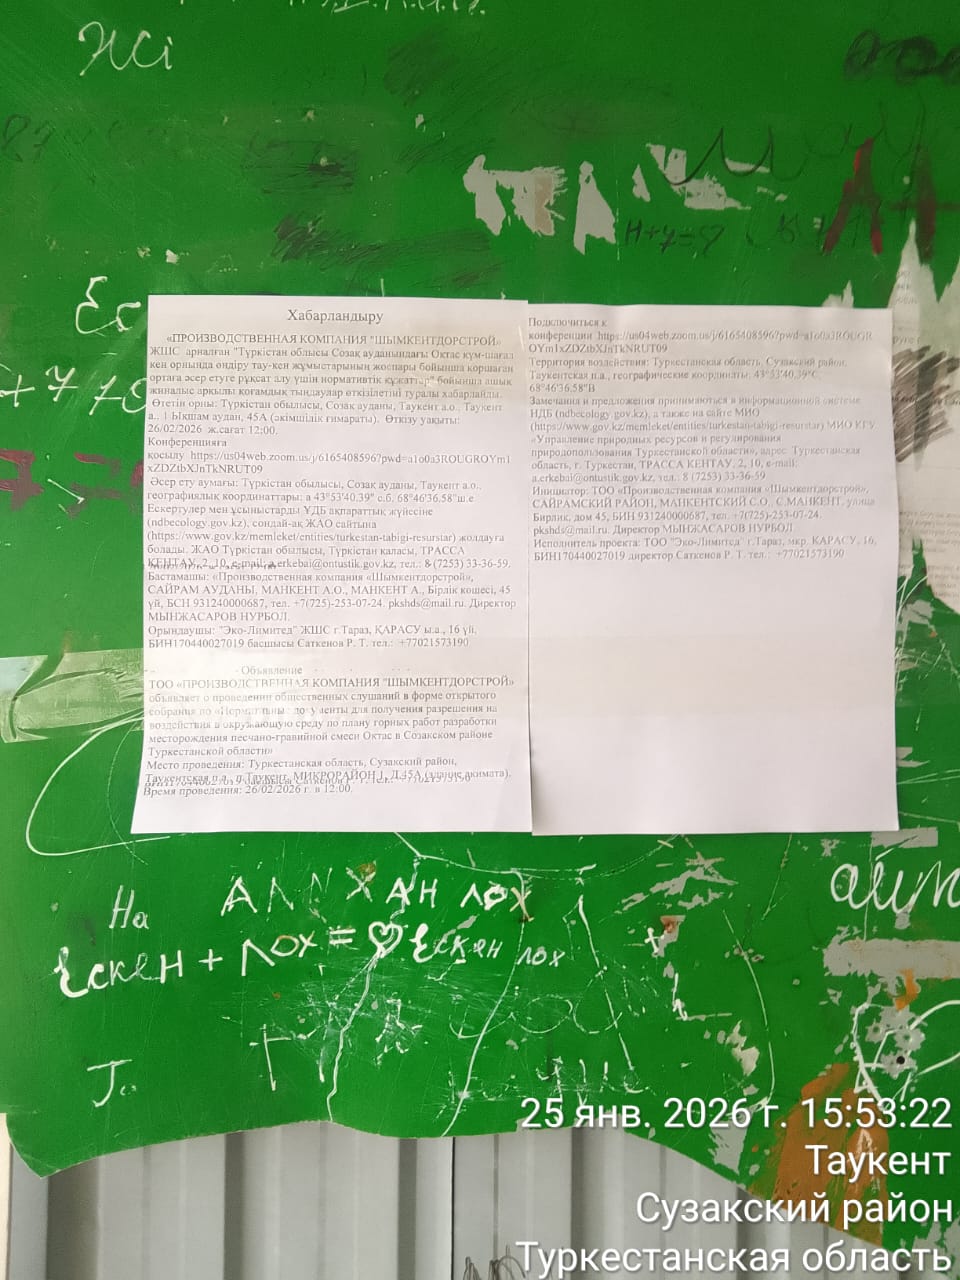 Жі
Ес
Н+У=?
+7 70
Хабарландыру
«ПРОИЗВОДСТВЕННАЯ КОМПАНИЯ "ШЫМКЕНТДОРСТРОЙ»
ЖШС арналған "Түркістан облысы Созақ ауданындағы Октас құм-шағал
кен орнында өндіру тау-кен жұмыстарының жоспары бойынша қоршаған
ортаға әсер етуге рұқсат алу үшін нормативтік құжаттар" бойынша ашық
жиналыс арқылы қоғамдық тыңдаулар өткізілетіні туралы хабарлайды.
Өтетін орны: Түркістан обылысы, Созақ ауданы, Таукент а.о., Таукент
а., 1 Ықшам аудан, 45А (әкімшілік ғимараты). Өткізу уақыты:
26/02/2026 ж.сағат 12:00.
Конференцияға
қосылу https://us04web.zoom.us/j/6165408596?pwd=a1o0a3ROUGROYm1
xZDZtbXJnTkNRUT09
Әсер ету аумағы: Түркістан обылысы, Созақ ауданы, Таукент а.о.,
географиялық координаттары: a 43°53'40.39" с.б. 68°46'36.58"ш.е
Ескертулер мен ұсыныстарды ҰДБ ақпараттық жүйесіне
(ndbecology.gov.kz), сондай-ақ ЖАО сайтына
(https://www.gov.kz/memleket/entities/turkestan-tabigi-resurstar) жолдауға
болады. ЖАО Түркістан обылысы, Түркістан қаласы, ТРАССА
КЕНТАУ, 2, 10, e-mail: a.erkebai@ontustik.gov.kz, тел.: 8 (7253) 33-36-59.
Бастамашы: «Производственная компания «Шымкентдорстрой»,
САЙРАМ АУДАНЫ, МАНКЕНТ А.О., МАНКЕНТ А., Бірлік көшесі, 45
үй, БСН 931240000687, тел. +7(725)-253-07-24. pkshds@mail.ru. Директор
МЫНЖАСАРОВ НУРБОЛ.
Орындаушы: "Эко-Лимитед" ЖШС г.Тараз, ҚАРАСУ ы.а., 16 үй,
БИН170440027019 басшысы Саткенов Р. Т. тел.: +77021573190
Объявление
ТОО «ПРОИЗВОДСТВЕННАЯ КОМПАНИЯ "ШЫМКЕНТДОРСТРОЙ»
объявляет о проведении общественных слушаний в форме открытого
собрания по «Нормативные документы для получения разрешения на
воздействия в окружающую среду по плану горных работ разработки
месторождения песчано-гравийной смеси Октас в Созакском районе
Туркестанской области»
Место проведения: Туркестанская область, Сузакский район,
Таукентская п.а., п.Таукент, МИКРОРАЙОН 1, Д.45А (здание акимата).
Время проведения: 26/02/2026 г. в 12:00.
Подключиться к
конференции https://us04web.zoom.us/j/6165408596?pwd=a1o0a3ROUGR
OYm1xZDZtbXJnTkNRUT09
Территория воздействия: Туркестанская область, Сузакский район,
Таукентская п.а., географические координаты: 43°53'40,39"С,
68°46'36,58"В
Замечания и предложения принимаются в информационной системе
НДБ (ndbecology.gov.kz), а также на сайте МИО
(https://www.gov.kz/memleket/entities/turkestan-tabigi-resurstar) МИО КГУ
«Управление природных ресурсов и регулирования
природопользования Туркестанской области», адрес: Туркестанская
область, г. Туркестан, ТРАССА КЕНТАУ, 2, 10, e-mail:
a.erkebai@ontustik.gov.kz, тел.: 8 (7253) 33-36-59
Инициатор: ТОО «Производственная компания «Шымкентдорстрой»,
САЙРАМСКИЙ РАЙОН, МАНКЕНТСКИЙ С.О., С.МАНКЕНТ, улица
Бирлик, дом 45, БИН 931240000687, тел. +7(725)-253-07-24.
pkshds@mail.ru. Директор МЫНЖАСАРОВ НУРБОЛ.
Исполнитель проекта: ТОО "Эко-Лимитед" г.Тараз, мкр. КАРАСУ, 16,
БИН170440027019 директор Саткенов Р. Т. тел.: +77021573190
На АЛИХАН ЛОХ
Ескен + ЛОХ = Ескен лох
25 янв. 2026 г. 15:53:22
Таукент
Сузакский район
Туркестанская область